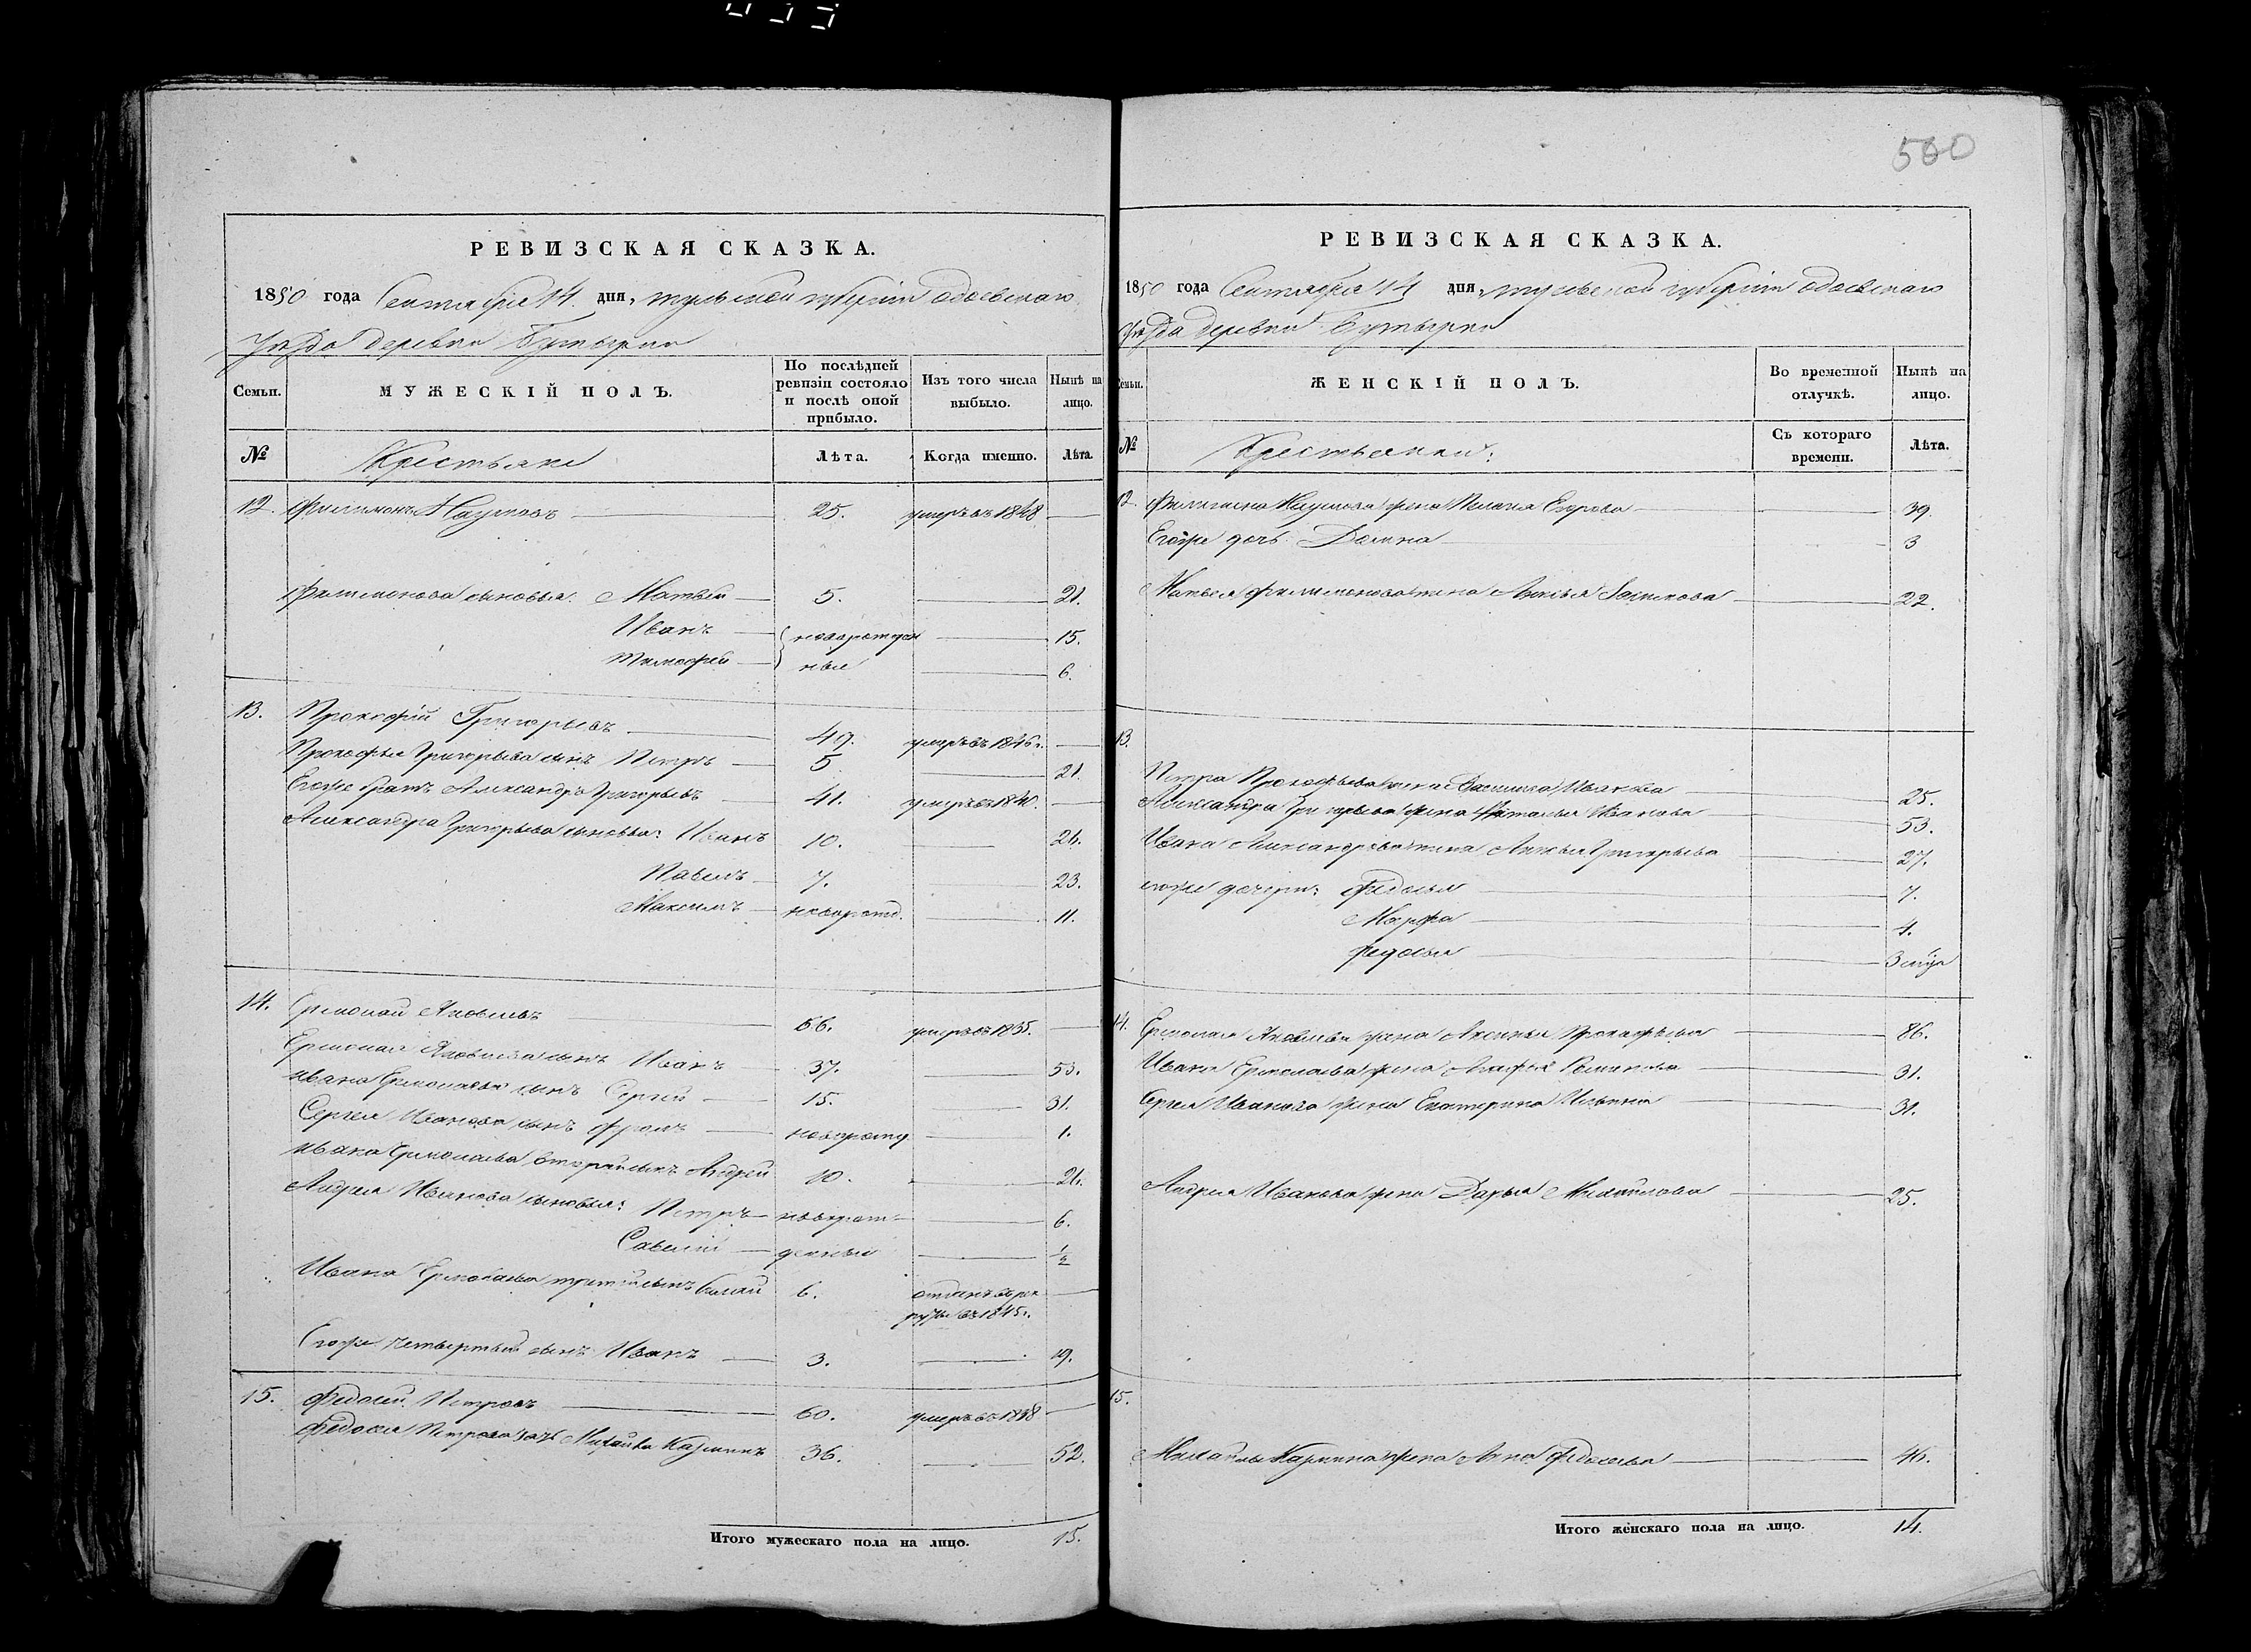 560
РЕВИЗСКАЯ СКАЗКА.
1850 года Сентября 14 дня, тульской губернiи одоевскаго
уѣзда деревни Бутырки
Семьи.
МУЖЕСКІЙ ПОЛЪ.
По послѣдней ревизіи состояло и послѣ оной прибыло.
Изъ того числа выбыло.
Нынѣ на лицо.
№
Крестьяне
Лѣта.
Когда именно.
Лѣта.
12. Филимонъ Наумовъ 25. умеръ въ 1848
Филимонова сыновья: Матвѣй 5. 21.
Иванъ новорожден 15.
Тимофей ные 6.
13. Прокофiй Григорьевъ 49. умеръ въ 1846 г.
Прокофья Григорьева сынъ Петръ 5 21.
Егоже братъ Александръ Григорьевъ 41. умеръ въ 1840.
Александра Григорьева сыновья: Иванъ 10. 26.
Павелъ 7. 23.
Максимъ новорожд. 11.
14. Ермолай Яковлевъ 66. умеръ въ 1835.
Ермолая Яковлева сынъ Иванъ 37. 53.
Ивана Ермолаева сынъ Сергѣй 15. 31.
Сергея Иванова сынъ новорожд. 1.
Ивана Ермолаева вторый сынъ Андрей 10. 26.
Андрея Иванова сыновья: Петръ новорож= 6.
Савелiй денные ½
Ивана Ермолаева третiй сынъ 6. отданъ въ рек
руты въ 1845 г.
Егоже четвертый сынъ Иванъ 3. 19.
15. Федосей Петровъ 60. умеръ въ 1838
Федосея Петрова зять Михайла Казминъ 36. 52.
Итого мужескаго пола на лицо. 15.
РЕВИЗСКАЯ СКАЗКА.
1850 года Сентября 14 дня, тульской губернiи одоевскаго
уѣзда деревни Бутырки
Семьи.
ЖЕНСКІЙ ПОЛЪ.
Во временной отлучкѣ.
Нынѣ на лицо.
№
Крестьянки:
Съ котораго времени.
Лѣта.
12. Филимона Наумова жена Пелагея Егорова 39.
Егоже дочь Домна 3
Матвея Филимонова жена Якимова 22.
13.
Петра Прокофьева жена Василиса Иванова 25.
Александра Григорьева жена Наталья Иванова 53.
Ивана Александрова жена Григорьева 27.
егоже дочери: Федосья 7.
Марфа 4.
Федосья 3 мѣся
14. Ермолая Яковлева жена Аксинья Прокофьева 86.
Ивана Ермолаева жена Агафья 31.
Сергея Иванова жена Екатерина Ильина 31.
Андрея Иванова жена Дарья Михайлова 25.
15.
Михайлы Казмина жена Анна Федосеева 46.
Итого женскаго пола на лицо. 14.